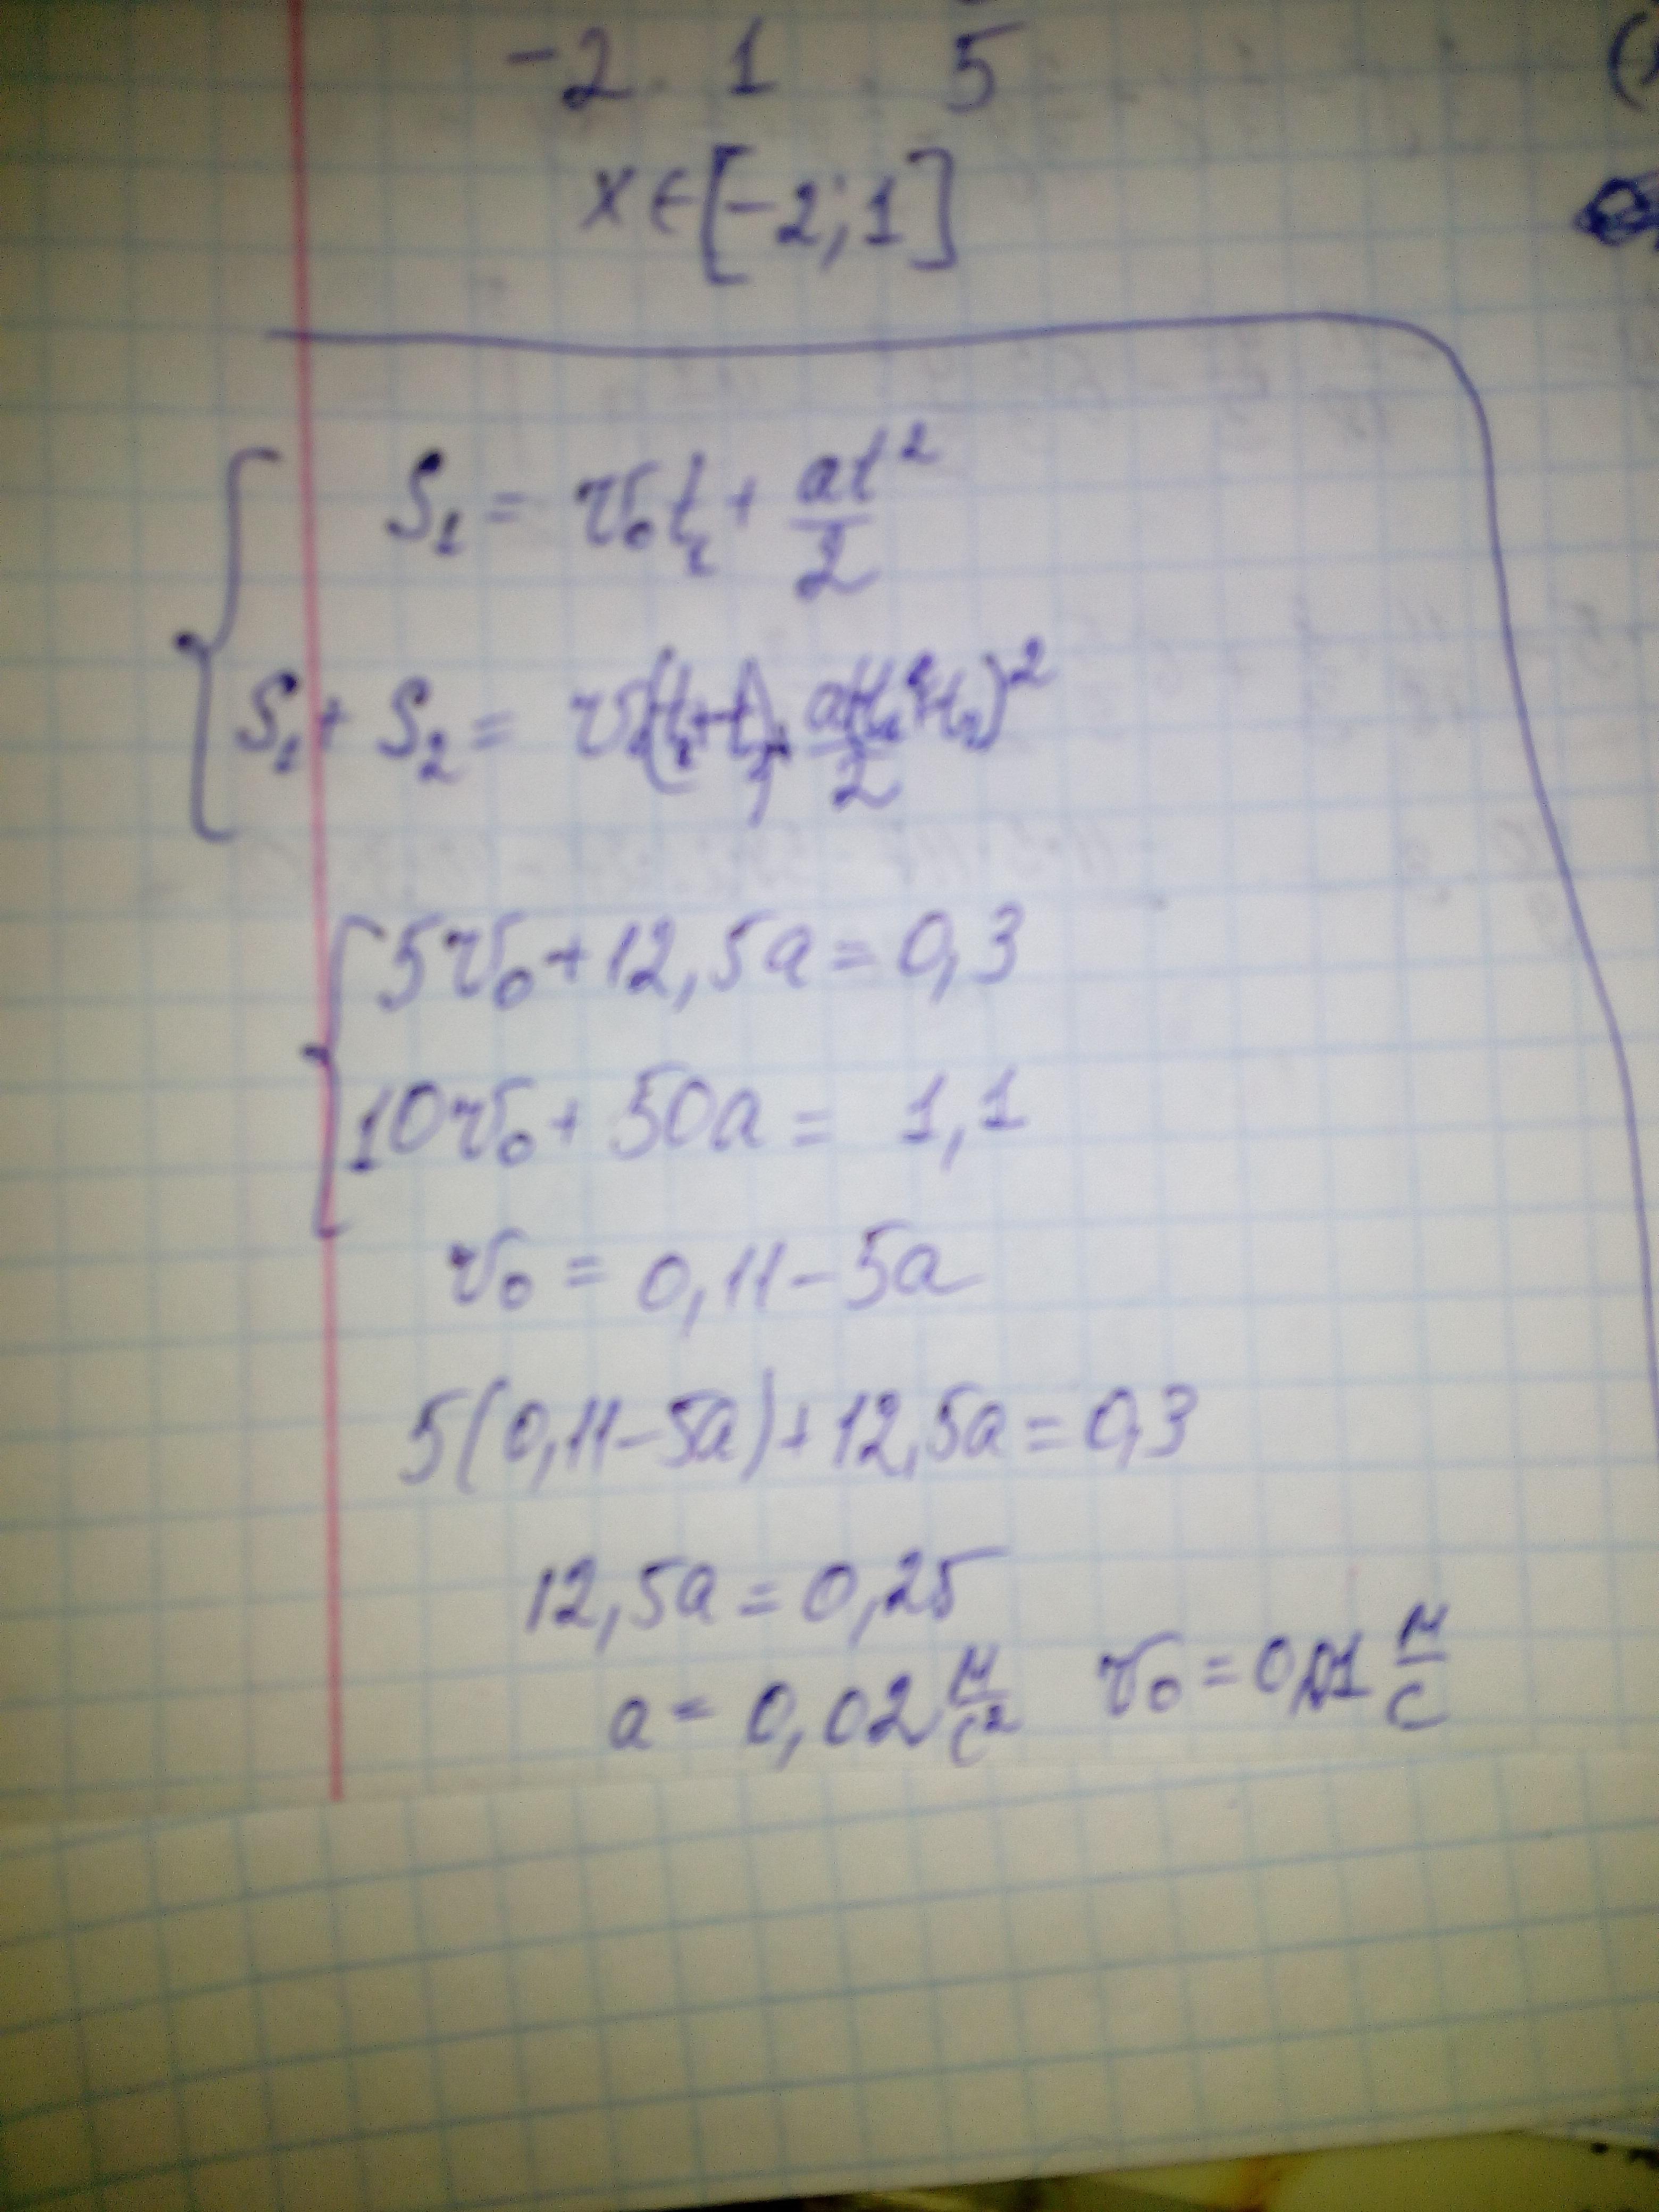 -2 1 5
x∈[-2;1]
S₁ = v₀t₁ + at²/2
S₁ + S₂ = v₀(t₁+t₂) + a(t₁+t₂)²/2
5v₀ + 12,5a = 0,3
10v₀ + 50a = 1,1
v₀ = 0,11 - 5a
5(0,11-5a) + 12,5a = 0,3
12,5a = 0,25
a = 0,02 м/с² v₀ = 0,01 м/с